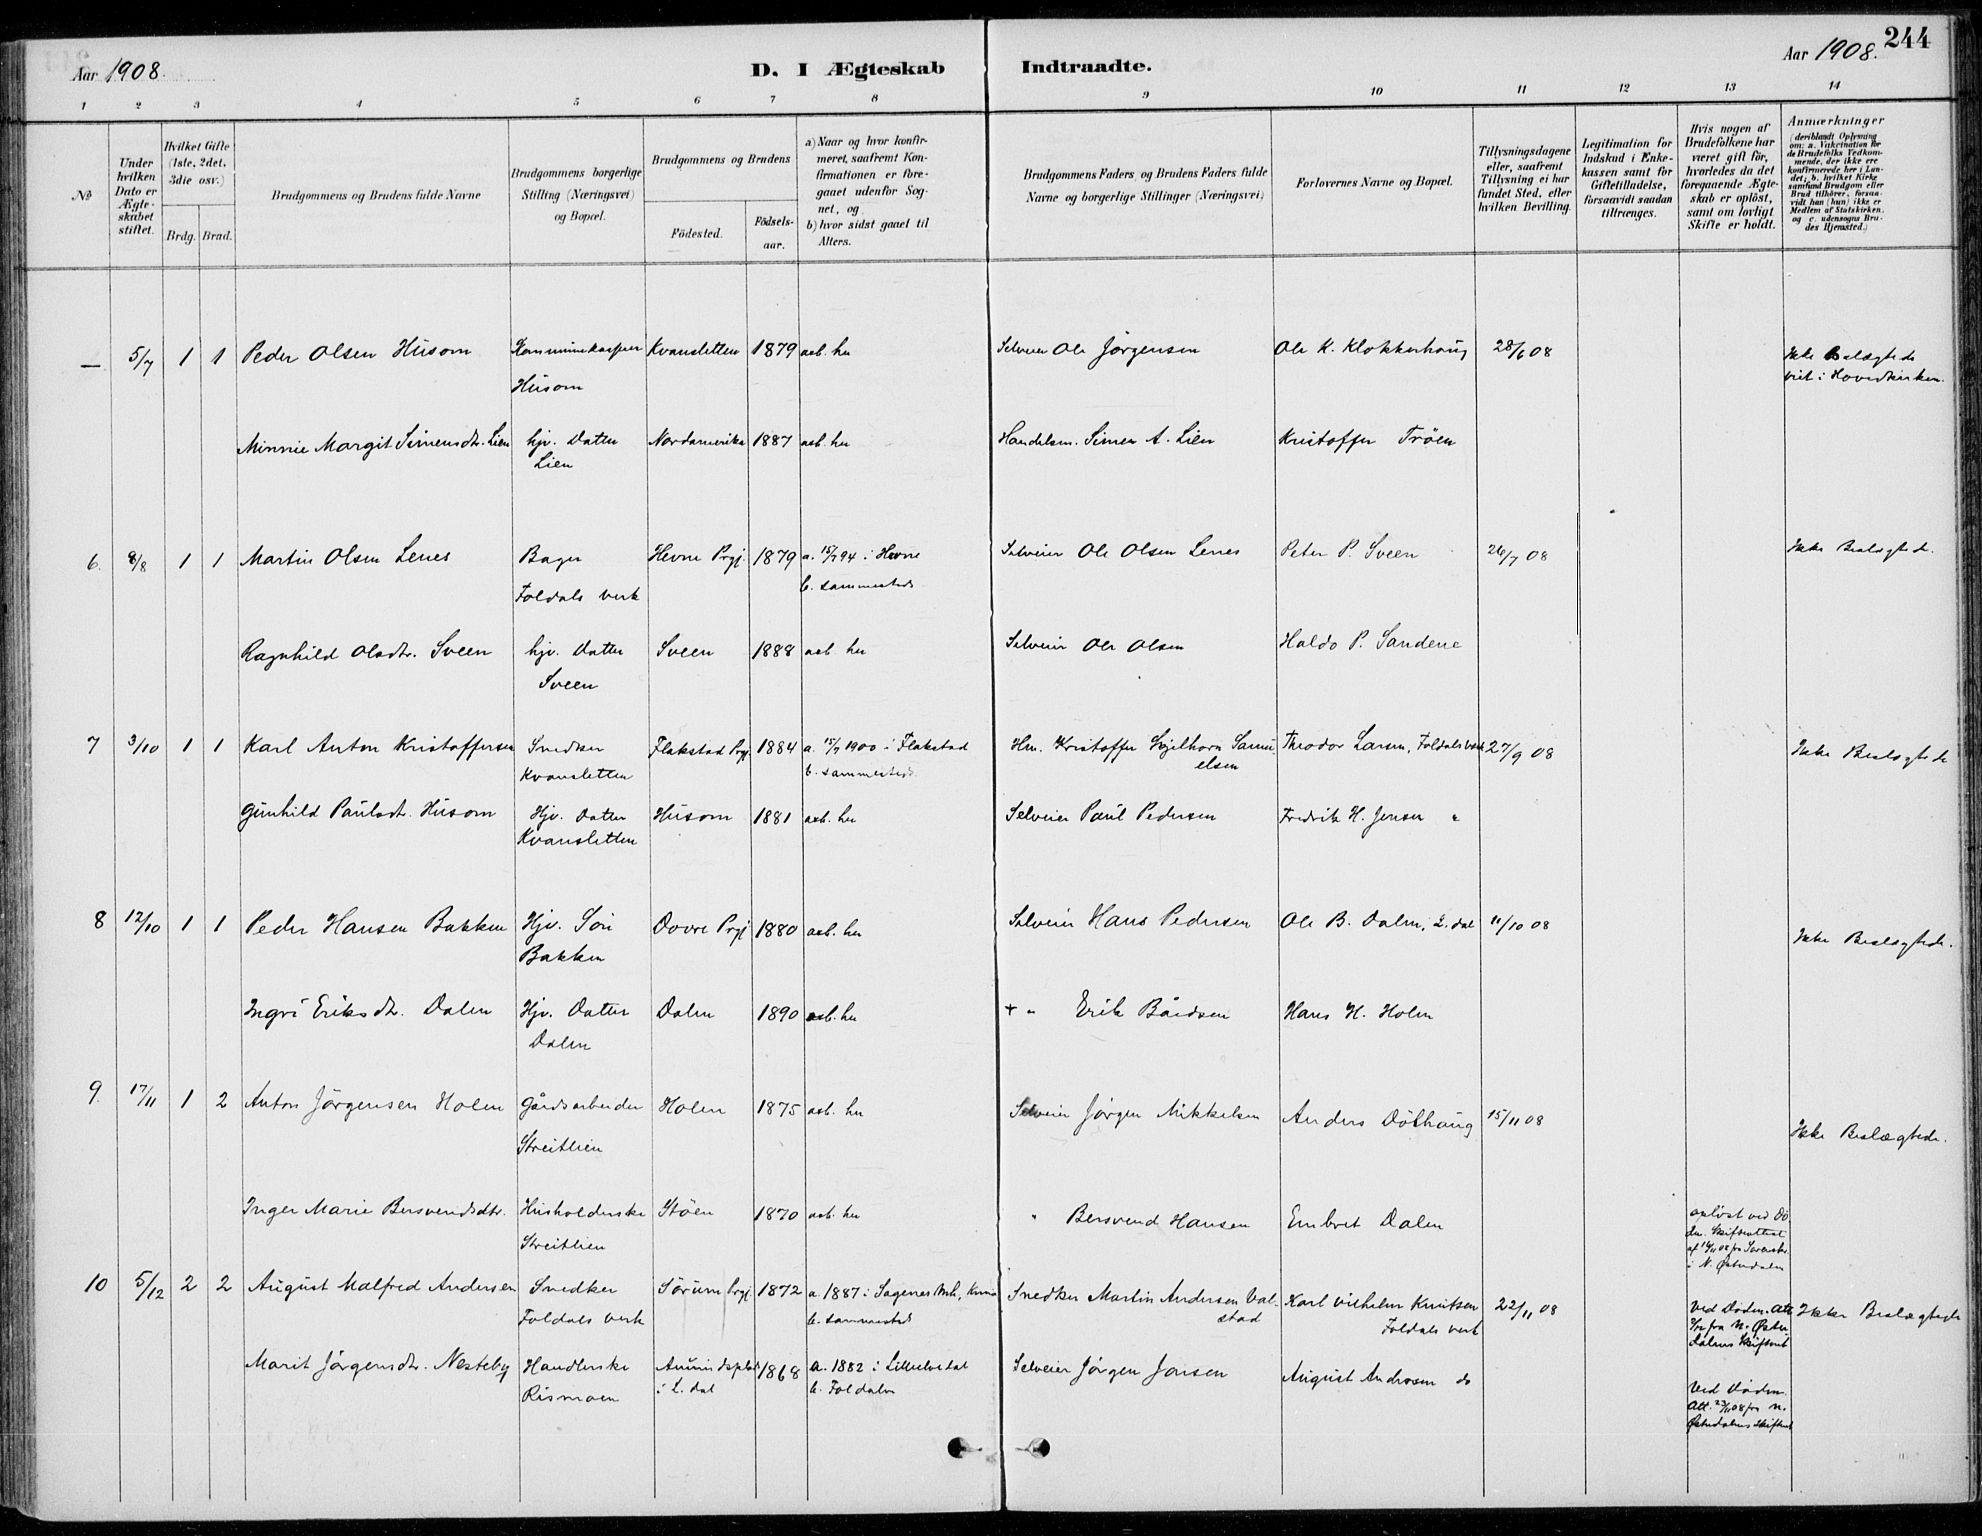 Aar 1908.
D. I Ægteskab Indtraadte.
Aar 1908.
244
1 2 3 4 5 6 7 8 9 10 11 12 13 14
№
Under hvilken Dato er Ægte-skabet stiftet.
Hvilket Gifte (1ste, 2det, 3die osv.)
Brdg. Brud.
Brudgommens og Brudens fulde Navne
Brudgommens borgerlige Stilling (Næringsvei) og Bopæl.
Brudgommens og Brudens
Födested.
Födsels-aar.
a) Naar og hvor konfir-meret, saafremt Kon-firmationen er fore-gaaet udenfor Sog-net, og
b) hvor sidst gaaet til Alters.
Brudgommens Faders og Brudens Faders fulde Navne og borgerlige Stillinger (Næringsvei)
Forlovernes Navne og Bopæl.
Tillysningsdagene eller, saafremt Tillysning ei har fundet Sted, efter hvilken Bevilling.
Legitimation for Indskud i Enke-kassen samt for Giftetilladelse, forsaavidt saadan tiltrænges.
Hvis nogen af Brudefolkene har været gift för, hvorledes da det foregaaende Ægte-skab er oplöst, samt om lovligt Skifte er holdt.
Anmærkninger
(deriblandt Oplysning om: a. Vakcination for de Brudefolks Vedkom-mende, der ikke ere konfirmerede her i Lan-det; b. hvilket Kirke samfund Brudgom eller Brud tilhörer, forsaa-vidt han (hun) ikke er Medlem af Statskirken, og c. udensogns Bru-des Hjemsted.)
— 5/7 1 1 Peder Olsen Husom Kommunekasserer Kvansletten 1879 aab. her Selveier Ole Jörgensen Ole K. Klokkerhaug 28/6 08 Ikke Beslægtede
Husom viet i Hovedkirken.
Minnie Margit Simensdtr. Lien hjv. Datter Nordamerika 1887 aab. her Handelsm. Simen A. Lien Kristoffer Tröen
Lien
6. 8/8 1 1 Martin Olsen Lenes Bager Hevne Prgj. 1879 a. 15/7 94 i Hevne Selveier Ole Olsen Lenes Peter P. Sveen 26/7 08 Ikke Beslægtede.
Foldals verk b. sammesteds
Ragnhild Olsdtr. Sveen hjv. Datter Sveen 1888 aab. her Selveier Ole Olsen Haldo P. Sandene
Sveen
7 3/10 1 1 Karl Anton Kristoffersen Snedker Flakstad Prgj. 1884 a. 15/7 1900 i Flakstad Hm. Kristoffer Gjelhorn Samu Theodor Larsen, Foldals verk 27/9 08 Ikke Beslægtede
Kvansletten b. sammesteds elsen
Gunhild Paulsdtr. Husom Hjv. Datter Husom 1881 aab. her Selveier Paul Pedersen Fredrik H. Jensen "
Kvansletten
8 12/10 1 1 Peder Hansen Bakken Hjv. Sön Dovre Prgj 1880 aab. her Selveier Hans Pedersen Ole B. Dalen, L. dal 11/10 08 Ikke Beslægtede.
Bakken
Ingri Eriksdtr. Dalen Hjv. Datter Dalen 1890 aab. her + " Erik Bårdsen Hans H. Holen
Dalen
9. 17/11 1 2 Anton Jörgensen Holen Gårdsarbeider Holen 1875 aab. her Selveier Jörgen Mikkelsen Anders Dölhaug 15/11 08
Streitlien Ikke Beslægtede.
Inger Marie Bersvendsdtr. Husholderske Stöen 1870 aab. her " Bersvend Hansen Embret Dalen oplöst ved Dö
Streitlien den. Skifteattest
af 14/11 08 fra Sorenskr.
i N. Østerdalen
10 5/12 2 2 August Malfred Andersen Snedker Sörum Prgj. 1872 a. 1887 i Sagenes Mh, Kr.nia Snedker Martin Andersen Val- Karl Vilhelm Knutsen 22/11 08 Ved Döden. Att. Ikke Beslægtede
Foldals verk b. sammesteds stad Foldals verk fra N. Öster
dalens Skifteret
Marit Jörgensdtr. Nesteby Handlerske 1868 a. 1882 i Lilleelvedal Selveier Jörgen Jonsen August Andresen do
Rismoen i L. dal b. Foldalen
Ved Döden.
Att. 23/11 08 fra N.
Østerdalens Skifteret